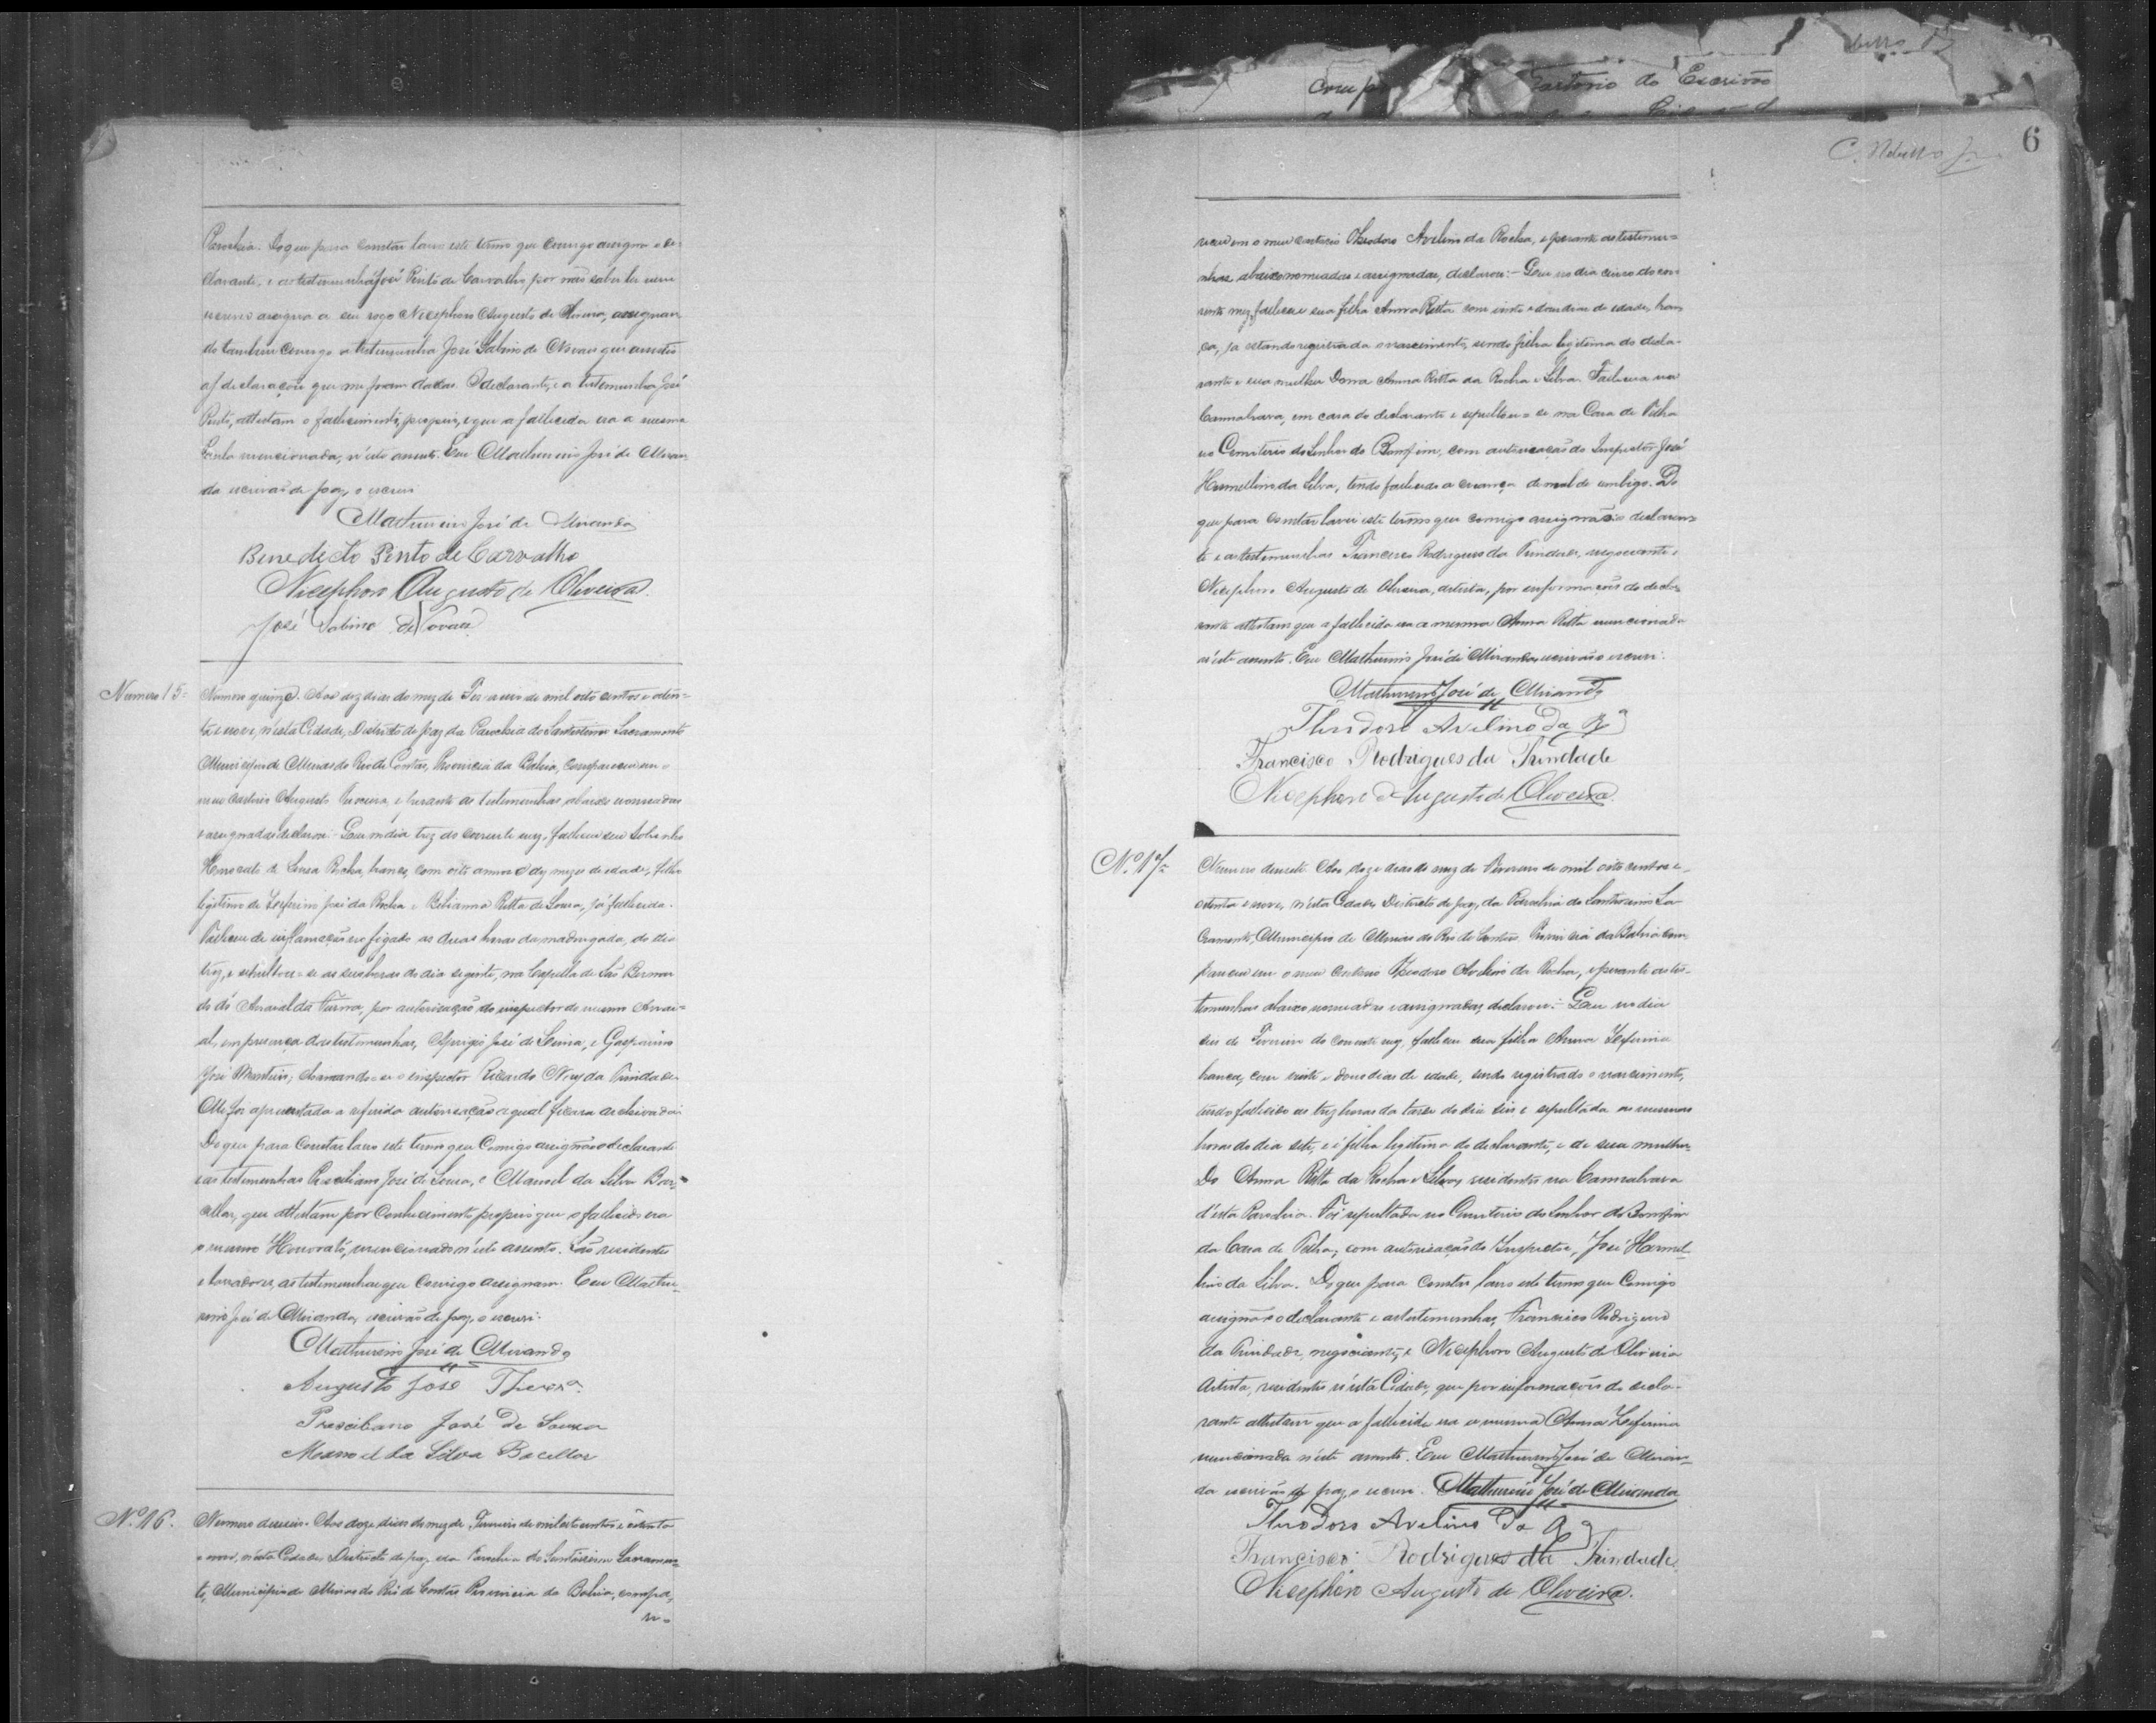 Parochia. Do que para constar lavro este termo que comigo assignão o de-
clarante, e as testemunhas José Pinto de Carvalho por não saber ler nem
escrever assigna a seu rogo Nicephoro Augusto de Oliveira, assignan
do tambem comigo a testemunha José Sabino de Novaes que assistio
as declarações que me foram dadas. O declarante, e a testemunha José
Pinto, attestam o fallecimento, e que a fallecida era a mesma
mencionada, n'este assento. Eu Mathurino José de Miran
da escrivão de paz, o escrevi
Mathurino José de Miranda
Benedicto Pinto de Carvalho
Nicephoro Augusto de Oliveira.
José Sabino de Novaes
Numero 15=
Numero quinze. Aos dez dias do mez de Fevereiro de mil oito centos e oiten=
ta e nove, n'esta Cidade, Districto de paz da Parochia do Santissimo Sacramento
Municipio de Minas do Rio de Contas, Provincia da Bahia, compareceu em o
meu Cartorio Augusto e perante as testemunhas abaixo nomeadas
e assignadas declarou:- Que no dia trez do corrente mez, falleceu seu sobrinho
Honorato de Rocha, branco, com oito annos e dez mezes de idade, filho
legitimo de Zeferino José da Rocha e Ritta de Sousa, já fallecida.
Falleceu de inflamação no figado as duas horas da madrugada, do dia
trez, e sepultou-se as seis horas do dia seguinte, na Capella de São Bernar
do do Arraial da Furna, por autorisação do inspector do mesmo Arrai=
al, em presença das testemunhas, José de e
José Martins; chamando-se o inspector Ricardo da Trindade
Me foi apresentada a referida autorisação a qual ficará archivada.
Do que para constar lavro este termo que Comigo assignão o declarante
e as testemunhas Presciliano José de Sousa, e Manoel da Silva Ba-
cellar, que attestam por conhecimento proprio que o fallecido era
o mesmo Honorato, mencionado n'este assento. São residentes
e lavradores, as testemunhas que Comigo assignam. Eu Mathu-
rino José de Miranda, escrivão de paz, o escrevi.
Mathurino José de Miranda
Augusto José
Presciliano José de Sousa
Manoel da Silva Bacellar
No. 16.
Numero deseseis. Aos doze dias do mez de Fevereiro de mil oito centos e oitenta
e nove, n'esta Cidade Districto de paz da Parochia do Santissimo Sacramen-
to, Municipio de Minas do Rio de Contas Provincia da Bahia, compa-
re=
Cartorio do Escrivão
6
receu em o meu cartorio Theodoro Avelino da Rocha, e perante as testemu=
nhas abaixo nomeadas e assignadas, declarou:- Que no dia cinco do cor
rente mez, falleceu sua filha Anna Ritta com vinte e dous dias de edade, bran
ca, já estando registrada o nascimento, sendo filha legitima do decla-
rante e sua mulher Dona Anna Ritta da Rocha e Silva. Falleceu na
Cannabrava, em casa do declarante e sepultou-se na Casa de Telha
no Cemiterio do Senhor do Bomfim, com autorisação do Inspector José
Hermellino da Silva, tendo fallecido a criança de mal de umbigo. Do
que para constar lavrei este termo que comigo assignão o declaran-
te e as testemunhas Francisco Rodrigues da Trindade, negociante e
Nicephoro Augusto de Oliveira, artista, por informações do decla-
rante attestam que a fallecida era a mesma Anna Ritta mencionada
n'este assento. Eu Mathurino José de Miranda, escrivão o escrevi.
Mathurino José de Miranda
Theodoro Avelino da Ra
Francisco Rodrigues da Trindade
Nicephoro Augusto de Oliveira.
No. 17=
Numero desesete. Aos doze dias do mez de Fevereiro de mil oito centos e
oitenta e nove, n'esta Cidade, Districto de paz, da Parochia do Santissimo Sa-
cramento, Municipio de Minas do Rio de Contas Provincia da Bahia com
pareceu em o meu cartorio Theodoro Avelino da Rocha, e perante as tes-
temunhas abaixo nomeadas e assignadas, declarou:- Que no dia
seis de Fevereiro do corrente mez, falleceu sua filha Anna Zeferina
branca, com vinte e dous dias de edade, sendo registrado o nascimento,
tendo fallecido as trez horas da tarde do dia seis e sepultada as mesmas
horas do dia sete, e é filha legitima do declarante, e de sua mulher
Da Anna Ritta da Rocha e Silva, residentes na Cannabrava
d'esta Parochia. Foi sepultada no Cemiterio do Senhor do Bomfim
da Casa de Telha, com autorisação do Inspector, José Hermel-
lino da Silva. Do que para constar lavro este termo que Comigo
assignão o declarante e as testemunhas, Francisco Rodrigues
da Trindade, negociante, e Nicephoro Augusto de Oliveira
artista, residentes n'esta Cidade, que por informações do decla-
rante attestam que a fallecida era a mesma Anna Zeferina
mencionada n'este assento. Eu Mathurino José de Miran-
da escrivão de paz, o escrevi. Mathurino José de Miranda
Theodoro Avelino da Ra
Francisco Rodrigues da Trindade
Nicephoro Augusto de Oliveira.